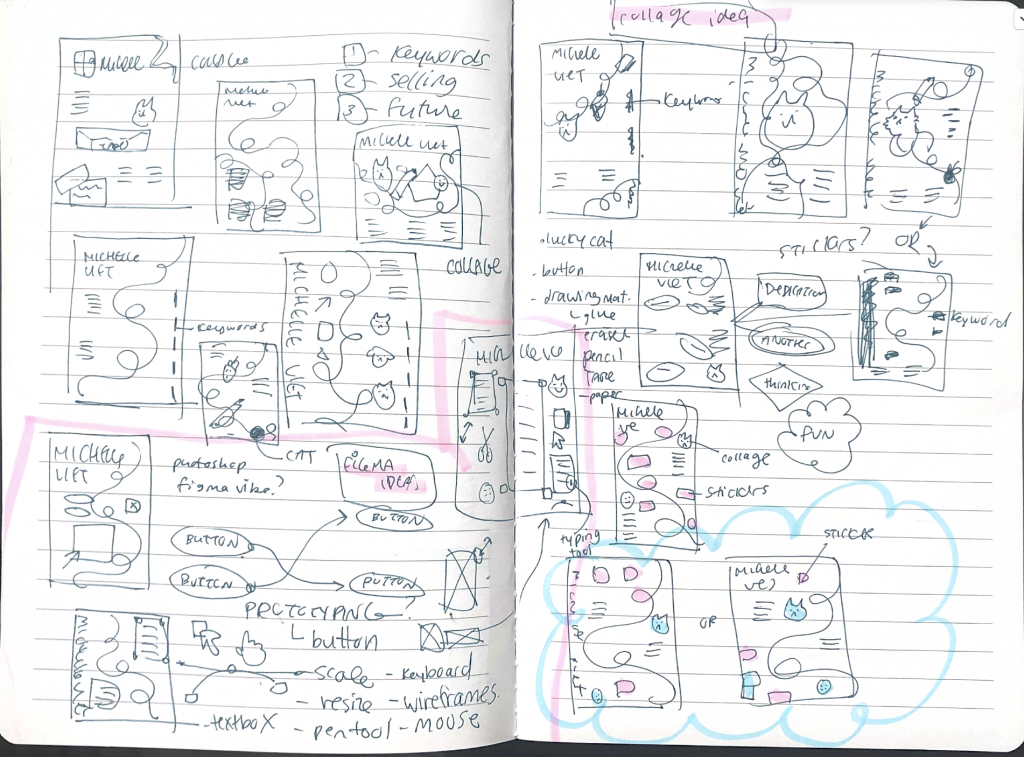 MICHELLE
COLLAGE
1 - Keywords
2 - selling
3 - Future
INFO
MICHELE VIET
COLLAGE
MICHELLE
VIET
Keywords
MICHELLE VIET
CAT
MICHELLE
VIET
photoshop
figma vibe?
FIGMA
IDEAS
BUTTON
BUTTON
BUTTON
BUTTON
PROTOTYPING?
button
- scale - keyboard
- resize - wireframes.
- textbox - pentool - MOUSE
collage idea
MICHELE
VIET
Keyword
STICKERS? OR
. lucky cat
. button
. drawing mat.
glue
eraser
pencil
tape
- paper
MICHELE
VIET
DEDICATION
ANOTHER
thinking
FUN
Keyword
Michele
collage
stickers
typing
tool
STICKER
Michele
OR